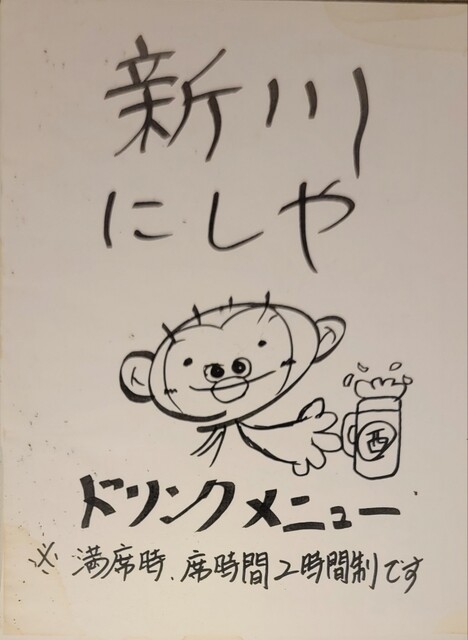 新川
にしや
西
ドリンクメニュー
※ 満席時、席時間2時間制です